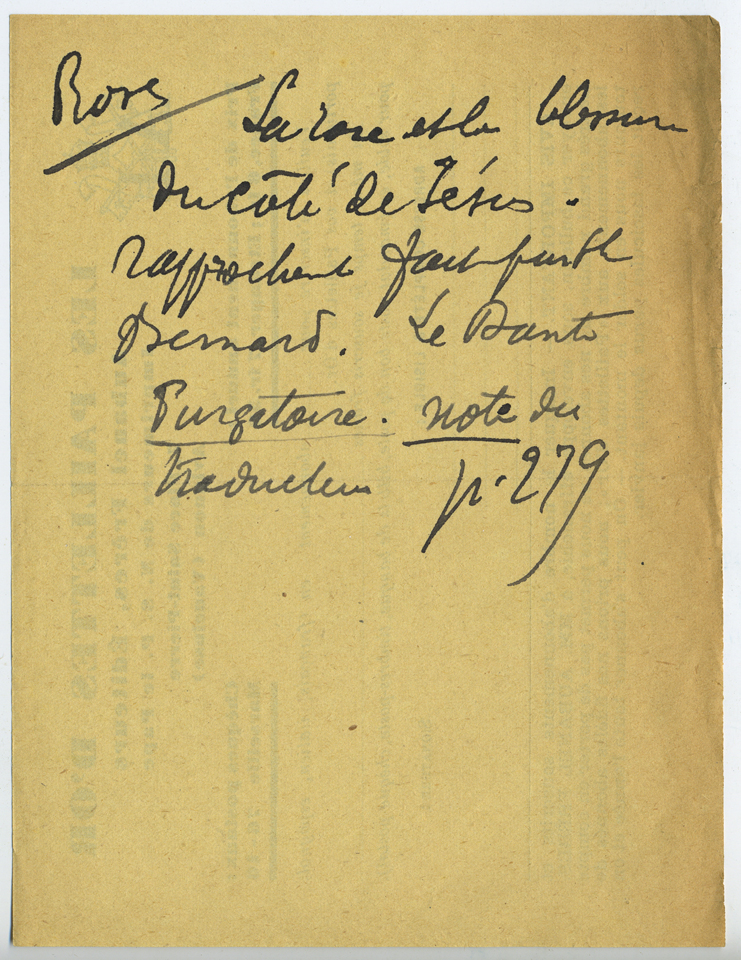 Rose
La rose et la blessure
du côté de Jésus.
rapprochement fait par St
Bernard. Le Dante
Purgatoire. note du
traducteur p. 279